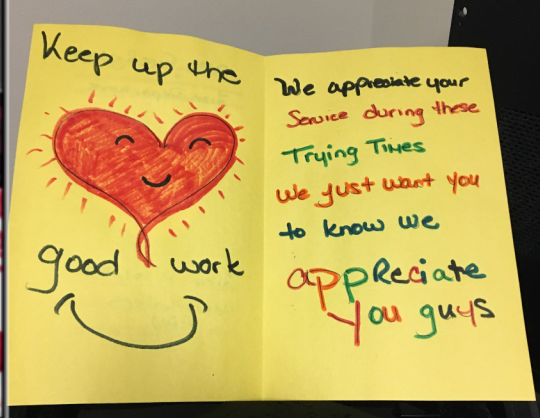 Keep up the
good work
We appreciate your
Service during these
Trying Times
We just want you
to know we
appReciate
You guys